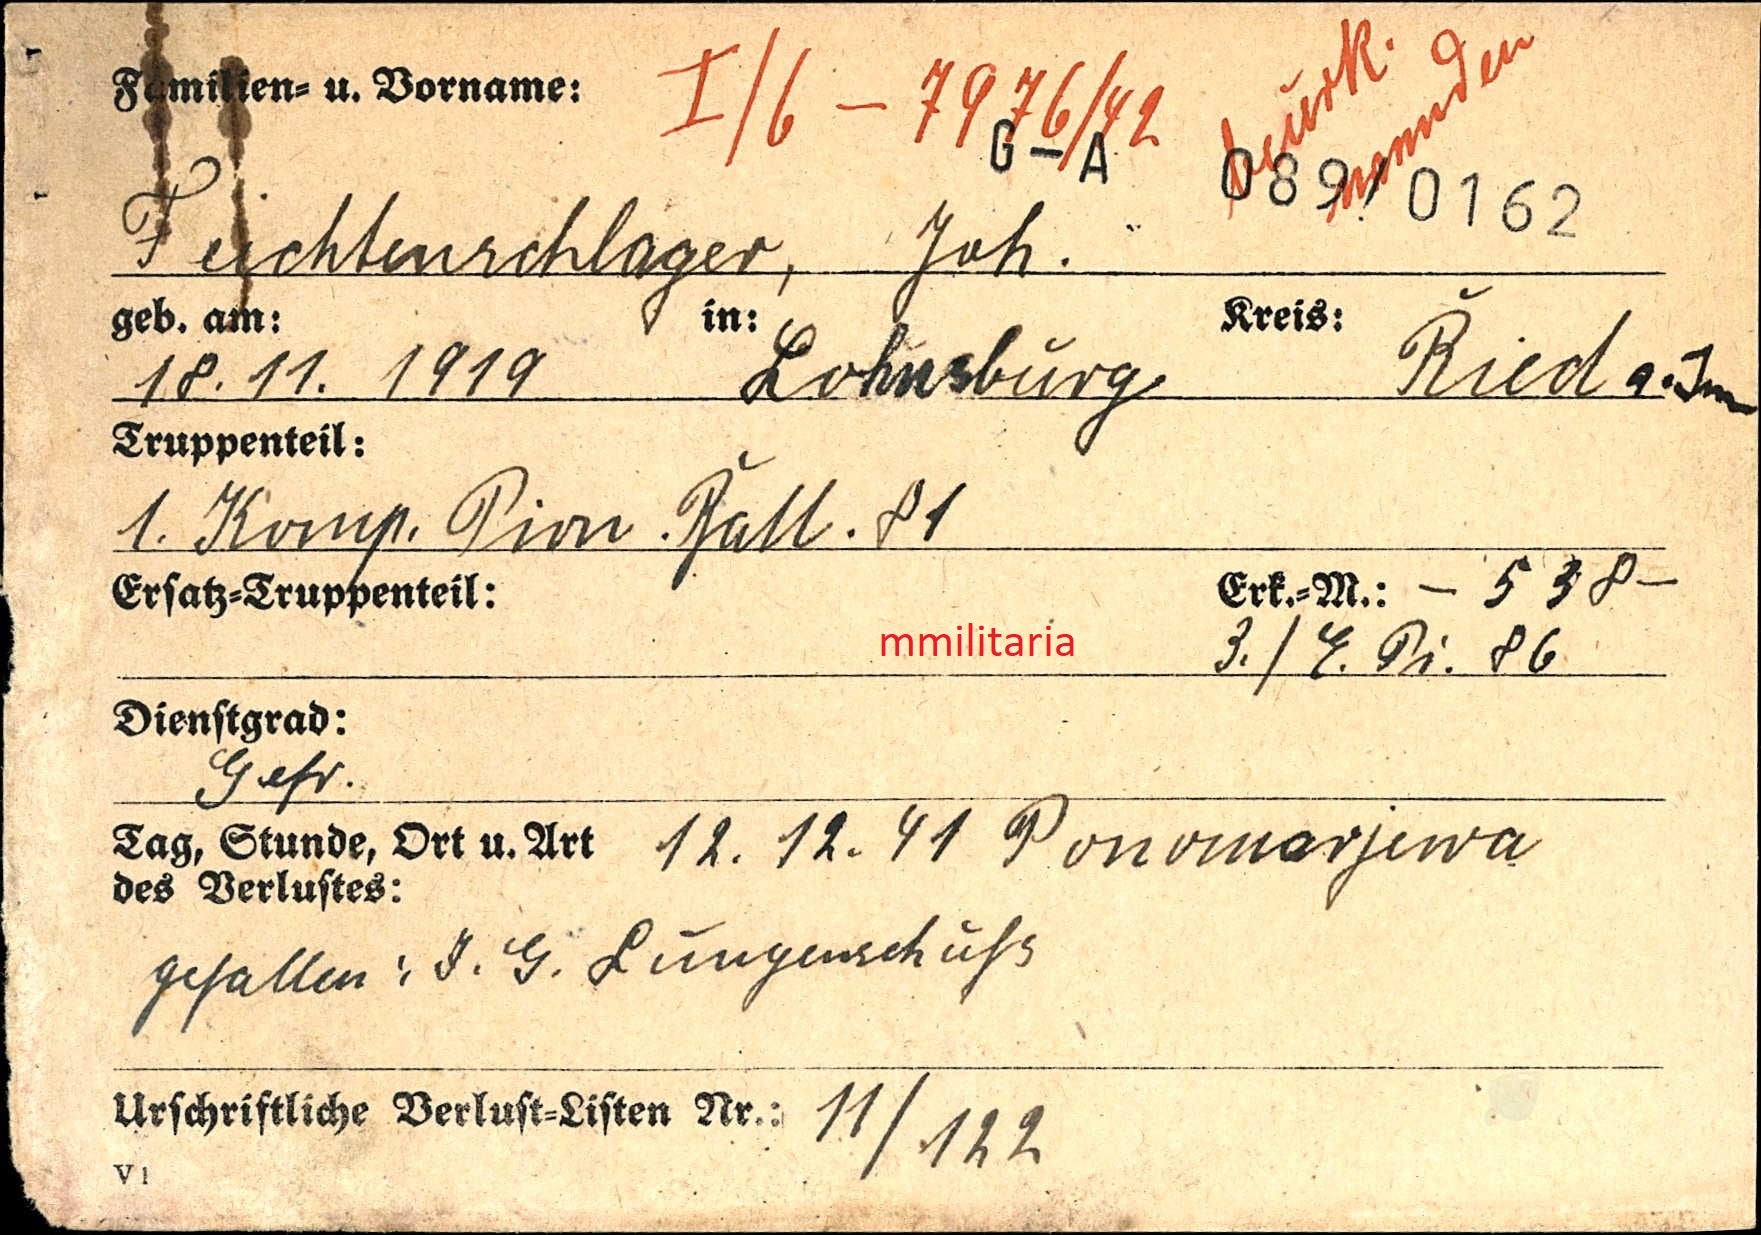 Familien- u. Vorname: I/6 – 7976/42
beurk.
G–A 089/0162
Feichtenschlager, Joh.
geb. am: in: Kreis:
18.11. 1919 Lohnsburg Ried a. Inn
Truppenteil:
1. Komp. Pion. Batl. 81
Ersatz-Truppenteil: Erk.-M.: – 538 –
mmilitaria 3./E. Pi. 86
Dienstgrad:
Gefr.
Tag, Stunde, Ort u. Art 12. 12. 41 Ponomarjewa
des Verlustes:
gefallen: I. G. Lungenschuß
Urschriftliche Verlust-Listen Nr.: 11/122
V 1